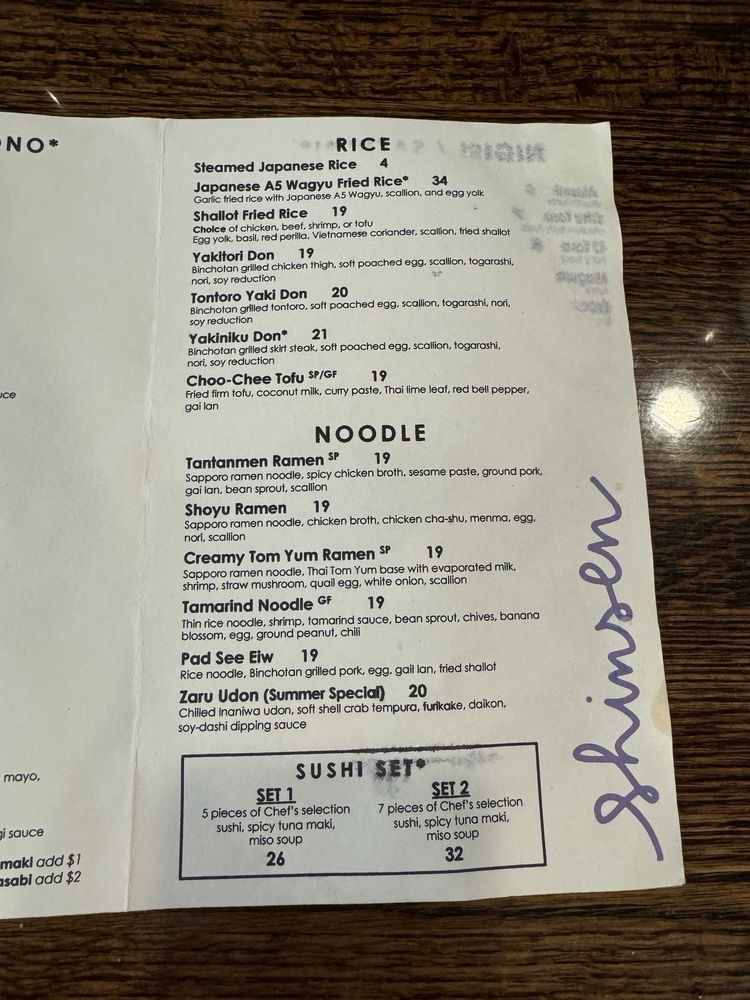 ONO*
uce
mayo,
gi sauce
maki add $1
asabi add $2
RICE
Steamed Japanese Rice 4
Japanese A5 Wagyu Fried Rice* 34
Garlic fried rice with Japanese A5 Wagyu, scallion, and egg yolk
Shallot Fried Rice 19
Choice of chicken, beef, shrimp, or tofu
Egg yolk, basil, red perilla, Vietnamese coriander, scallion, fried shallot
Yakitori Don 19
Binchotan grilled chicken thigh, soft poached egg, scallion, togarashi,
nori, soy reduction
Tontoro Yaki Don 20
Binchotan grilled tontoro, soft poached egg, scallion, togarashi, nori,
soy reduction
Yakiniku Don* 21
Binchotan grilled skirt steak, soft poached egg, scallion, togarashi,
nori, soy reduction
Choo-Chee Tofu SP/GF 19
Fried firm tofu, coconut milk, curry paste, Thai lime leaf, red bell pepper,
gai lan
NOODLE
Tantanmen Ramen SP 19
Sapporo ramen noodle, spicy chicken broth, sesame paste, ground pork,
gai lan, bean sprout, scallion
Shoyu Ramen 19
Sapporo ramen noodle, chicken broth, chicken cha-shu, menma, egg,
nori, scallion
Creamy Tom Yum Ramen SP 19
Sapporo ramen noodle, Thai Tom Yum base with evaporated milk,
shrimp, straw mushroom, quail egg, white onion, scallion
Tamarind Noodle GF 19
Thin rice noodle, shrimp, tamarind sauce, bean sprout, chives, banana
blossom, egg, ground peanut, chili
Pad See Eiw 19
Rice noodle, Binchotan grilled pork, egg, gail lan, fried shallot
Zaru Udon (Summer Special) 20
Chilled Inaniwa udon, soft shell crab tempura, furikake, daikon,
soy-dashi dipping sauce
SUSHI SET*
SET 1
5 pieces of Chef's selection
sushi, spicy tuna maki,
miso soup
26
SET 2
7 pieces of Chef's selection
sushi, spicy tuna maki,
miso soup
32
shinsen